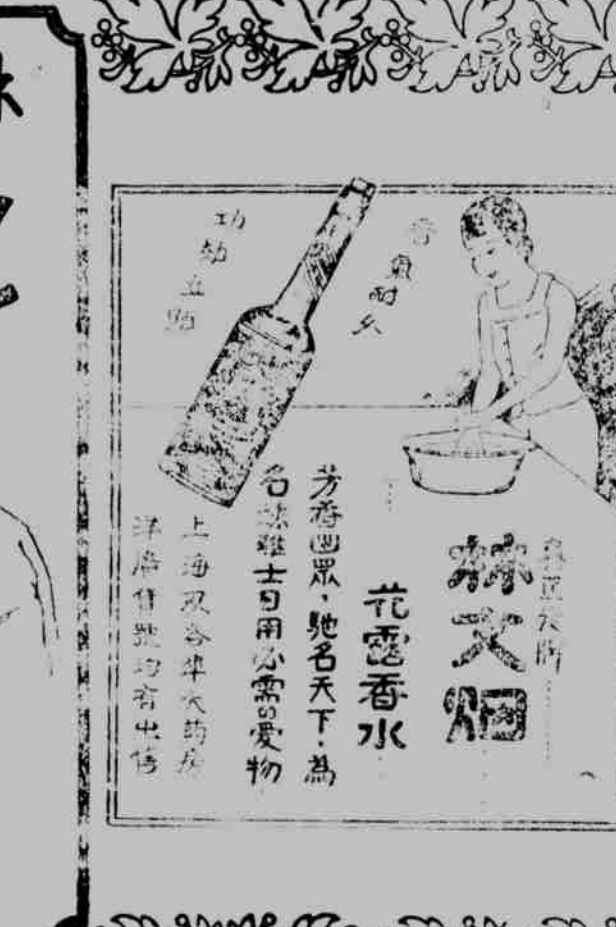 香氣耐久
功効立顕
老牌
林文烟
花露香水
芳香出眾，馳名天下，為
名媛雅士日用必需の愛物
上海及各埠大药房
洋廣貨號均有出售